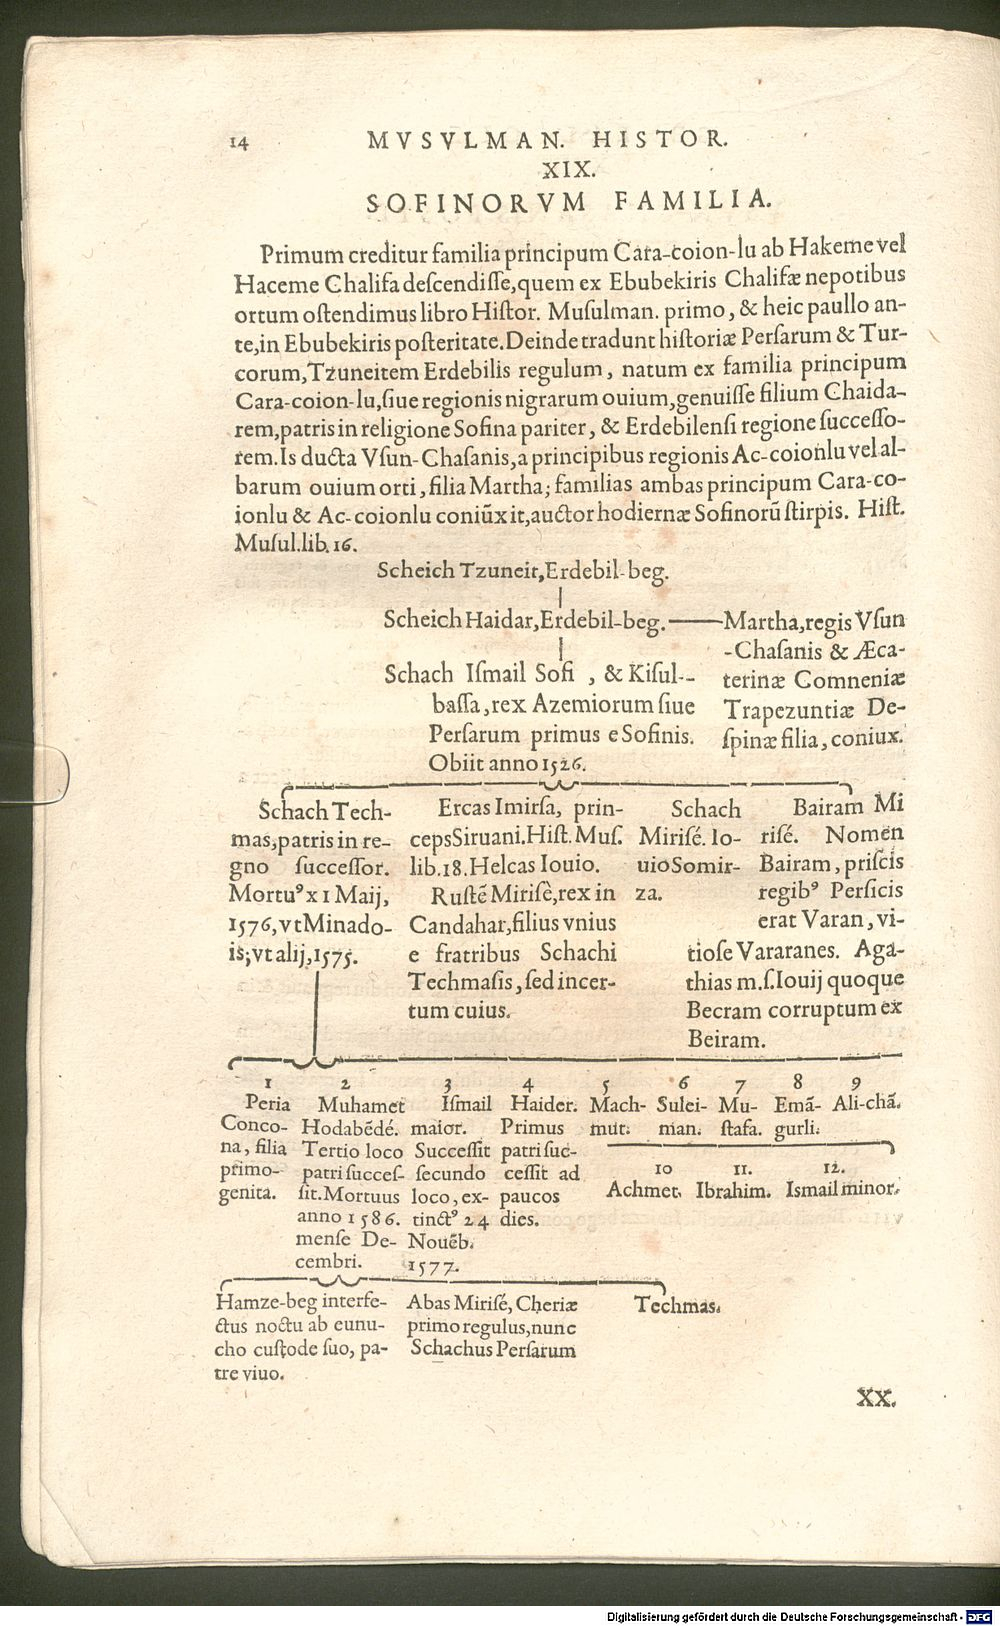 14 MVSVLMAN. HISTOR.
XIX.
SOFINORVM FAMILIA.
Primum creditur familia principum Cara-coion-lu ab Hakeme vel
Haceme Chalifa descendisse, quem ex Ebubekiris Chalifæ nepotibus
ortum ostendimus libro Histor. Musulman. primo, & heic paullo an-
te, in Ebubekiris posteritate. Deinde tradunt historiæ Persarum & Tur-
corum, Tzuneitem Erdebilis regulum, natum ex familia principum
Cara-coion-lu, siue regionis nigrarum ouium, genuisse filium Chaida-
rem, patris in religione Sofina pariter, & Erdebilensi regione successo-
rem. Is ducta Vsun-Chasanis, a principibus regionis Ac-coionlu vel al-
barum ouium orti, filia Martha; familias ambas principum Cara-co-
ionlu & Ac-coionlu coniũxit, auctor hodiernæ Sofinorũ stirpis. Hist.
Musul. lib. 16.
Scheich Tzuneit, Erdebil-beg.
Scheich Haidar, Erdebil-beg.
Martha, regis Vsun
-Chasanis & Æca-
terinæ Comneniæ
Trapezuntiæ De-
spinæ filia, coniux.
Schach Ismail Sofi , & Kisul-
bassa, rex Azemiorum siue
Persarum primus e Sofinis.
Obiit anno 1526.
Schach Tech-
mas, patris in re-
gno successor.
Mortuꝰ XI Maij,
1576, vt Minado-
is; vt alij, 1575.
Ercas Imirsa, prin-
ceps Siruani. Hist. Mus.
lib. 18. Helcas Iouio.
Rustẽ Mirisè, rex in
Candahar, filius vnius
e fratribus Schachi
Techmasis, sed incer-
tum cuius.
Schach
Mirisé. Io-
uio Somir-
za.
Bairam Mi
risé. Nomen
Bairam, priscis
regibꝰ Persicis
erat Varan, vi-
tiose Vararanes. Aga-
thias m.s. Iouij quoque
Becram corruptum ex
Beiram.
1
Peria
Conco-
na, filia
primo-
genita.
2
Muhamet
Hodabẽdé.
Tertio loco
patri succes-
sit. Mortuus
anno 1586.
mense De-
cembri.
3
Ismail
maior.
Successit
secundo
loco, ex-
tinctꝰ 24
Nouẽb.
1577.
4
Haider.
Primus
patri suc-
cessit ad
paucos
dies.
5
Mach-
mut.
6
Sulei-
man.
7
Mu-
stafa.
8
Emã-
gurli.
9
Ali-chã.
10
Achmet.
11.
Ibrahim.
12.
Ismail minor.
Hamze-beg interfe-
ctus noctu ab eunu-
cho custode suo, pa-
tre viuo.
Abas Mirisé, Cheriæ
primo regulus, nunc
Schachus Persarum
Techmas.
XX.
Digitalisierung gefördert durch die Deutsche Forschungsgemeinschaft - DFG